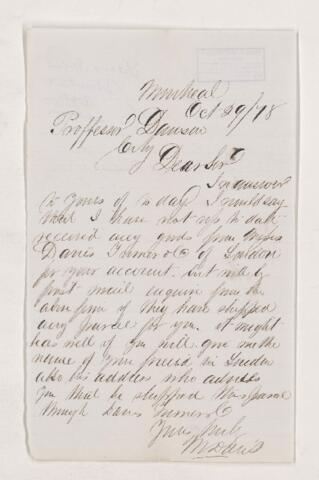 Montreal
Oct 29/78
Proffesser Dawson
City
Dear Sir
In answer
to yours of to day I must say
that I have not up to date
received any goods from Messrs
Davis Turner & C of London
for your account. but will by
first mail enquire from the
above firm if they have shipped
any parcel for you. it might
has well if you will give me the
name of your friend in London
also his address who advises
you that he shipped this parcel
through Davis Turner & C
Yours truly
M Davis